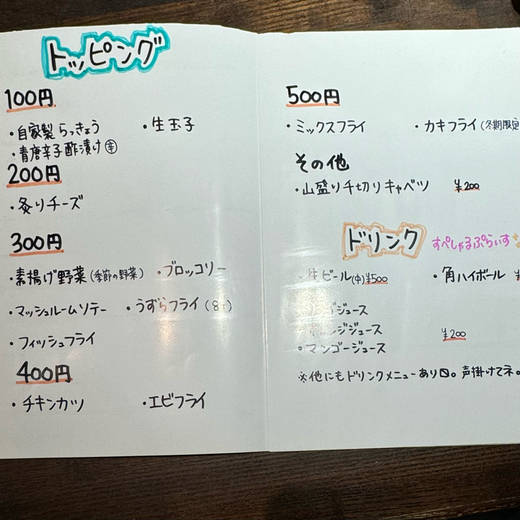 トッピング
100円
・自家製らっきょう ・生玉子
・青唐辛子酢漬け㊌
200円
・炙りチーズ
300円
・素揚げ野菜(季節の野菜) ・ブロッコリー
・マッシュルームソテー ・うずらフライ
・フィッシュフライ
400円
・チキンカツ ・エビフライ
500円
・ミックスフライ ・カキフライ(冬期限定
その他
・山盛り千切りキャベツ ¥200
ドリンク すぺしゃるぷらいす
・生ビール(中)¥500 ・角ハイボール
ジュース
ジュース ¥200
・マンゴージュース
※他にもドリンクメニューあり〼。声掛けてネ。